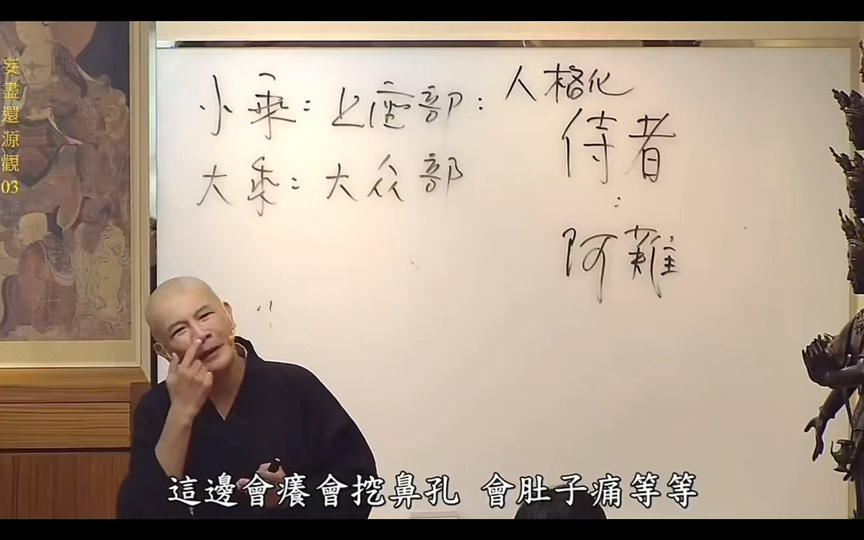 妄盡還源觀
03
小乘：上座部：人格化
大乘：大众部
侍者
：
阿難
這邊會癢會挖鼻孔 會肚子痛等等